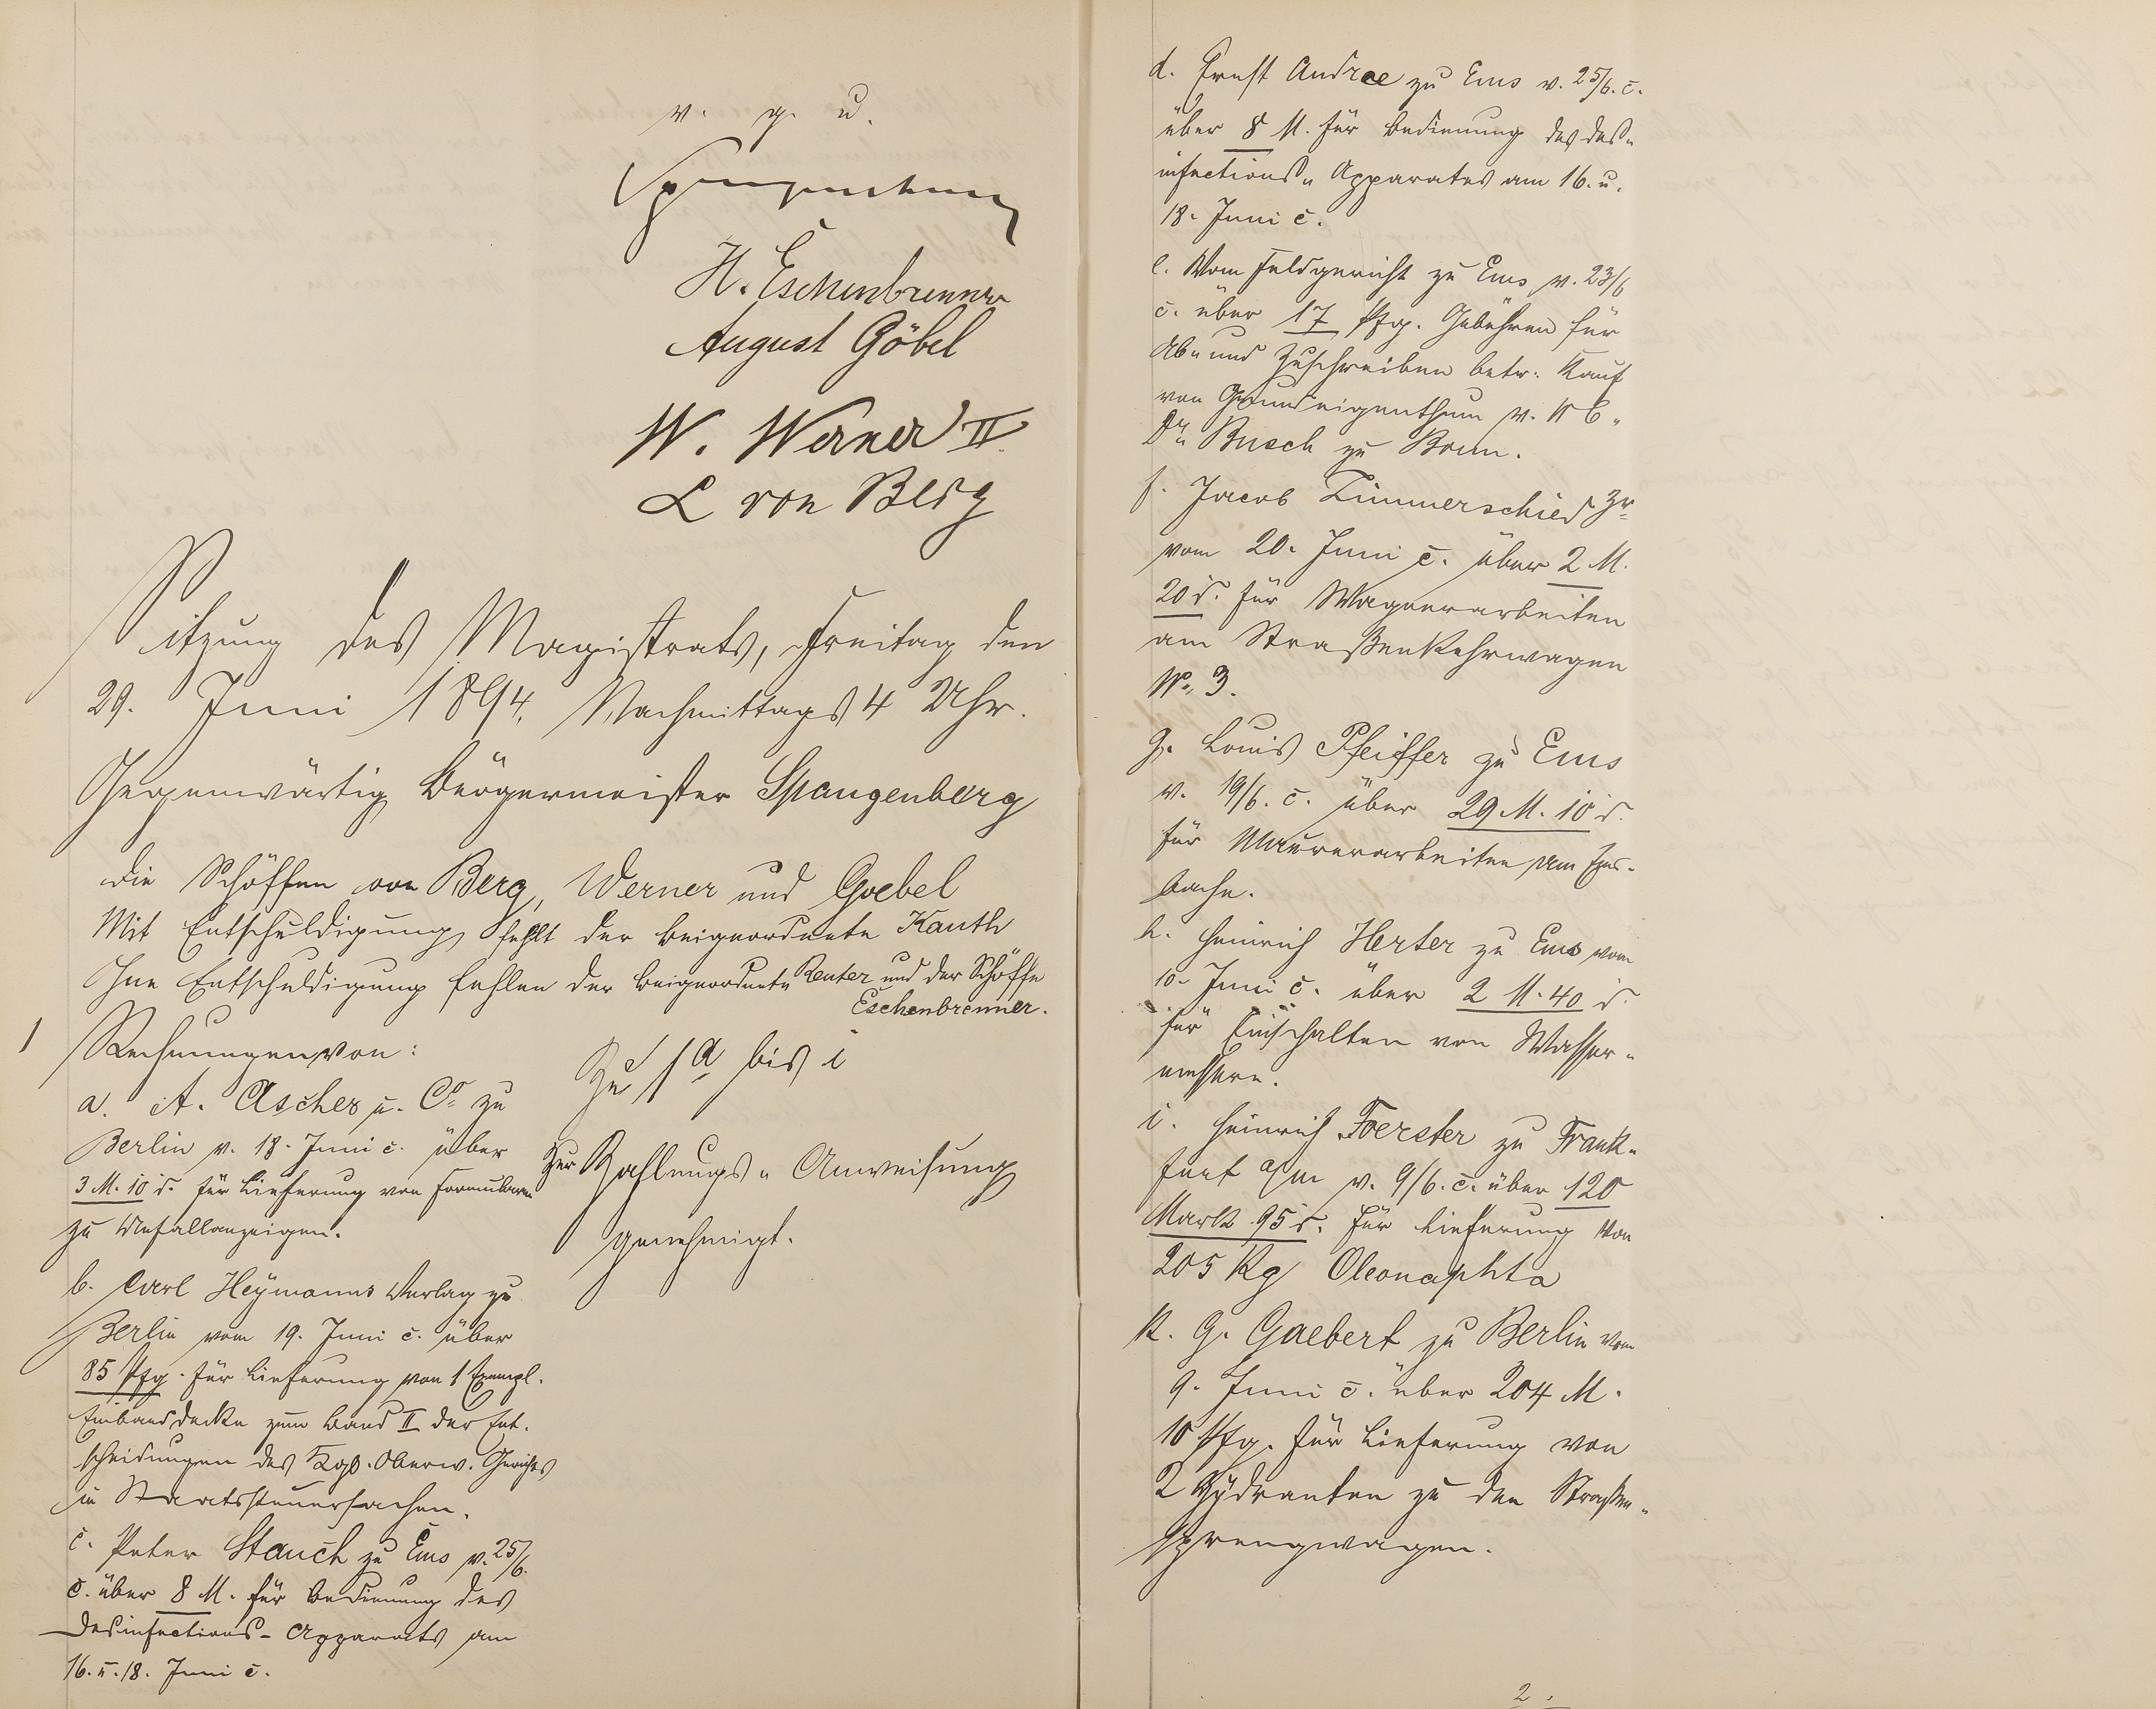 v. g. u.
Spangenberg
H. Eschenbrenner
August Göbel
W. Werner II
L von Berg
Sitzung des Magistrats, Freitag den
29. Juni 1894, Nachmittags 4 Uhr.
Gegenwärtig Bürgermeister Spangenberg
die Schöffen von Berg, Werner und Goebel
Mit Entschuldigung fehlt der Beigeordnete Kauth
Ohne Entschuldigung fehlen der Beigeordnete Reuter und der Schöffe
Eschenbrenner.
1 Rechnungen von:
a. A. Ascher u. Co zu
Berlin v. 18. Juni c. über
3 M. 10 d. für Lieferung von Formularen
zu Unfallanzeigen.
b. Carl Heymanns Verlag zu
Berlin vom 19. Juni c. über
85 Pfg. für Lieferung von 1 Exempl.
Einbanddecke zum Band II der Ent-
scheidungen des Kgl. Oberw. Gerichts
in Staatssteuersachen.
c. Peter Stauch zu Ems v. 25/6.
c. über 8 M. für Bedienung des
Desinfections-Apparats am
16. u. 18. Juni c.
Zu 1 a bis i
Zur Zahlungs-Anweisung
genehmigt.
d. Ernst Andree zu Ems v. 25/6. c.
über 8 M. für Bedienung des Des-
infections-Apparates am 16. u.
18. Juni c.
e. Vom Feldgericht zu Ems v. 23/6
c. über 17 Pfg. Gebühren für
Ab- und Zuschreiben betr. Kauf
von Grundeigenthum v.
Dr. Busch zu Bonn.
f. Jacob Zimmerschied
vom 20. Juni c. über 2 M.
20 d. für Wagnerarbeiten
am Straßenkehrwagen
No. 3.
g. Louis Pfeiffer zu Ems
v. 19/6. c. über 29 M. 10 d.
für Maurerarbeiten am Ems-
bache.
h. Heinrich Herter zu Ems vom
10. Juni c. über 2 M. 40 d.
für Einschalten von Wasser-
messern.
i. Heinrich Foerster zu Frank-
furt a/m v. 9/6. c. über 120
Mark 95 d. für Lieferung von
205 Kg Oleonaphta
k. G. Gaebert zu Berlin vom
9. Juni c. über 204 M.
10 Pfg. für Lieferung von
2 Hydranten zu den Straßen-
sprengwagen.
2.